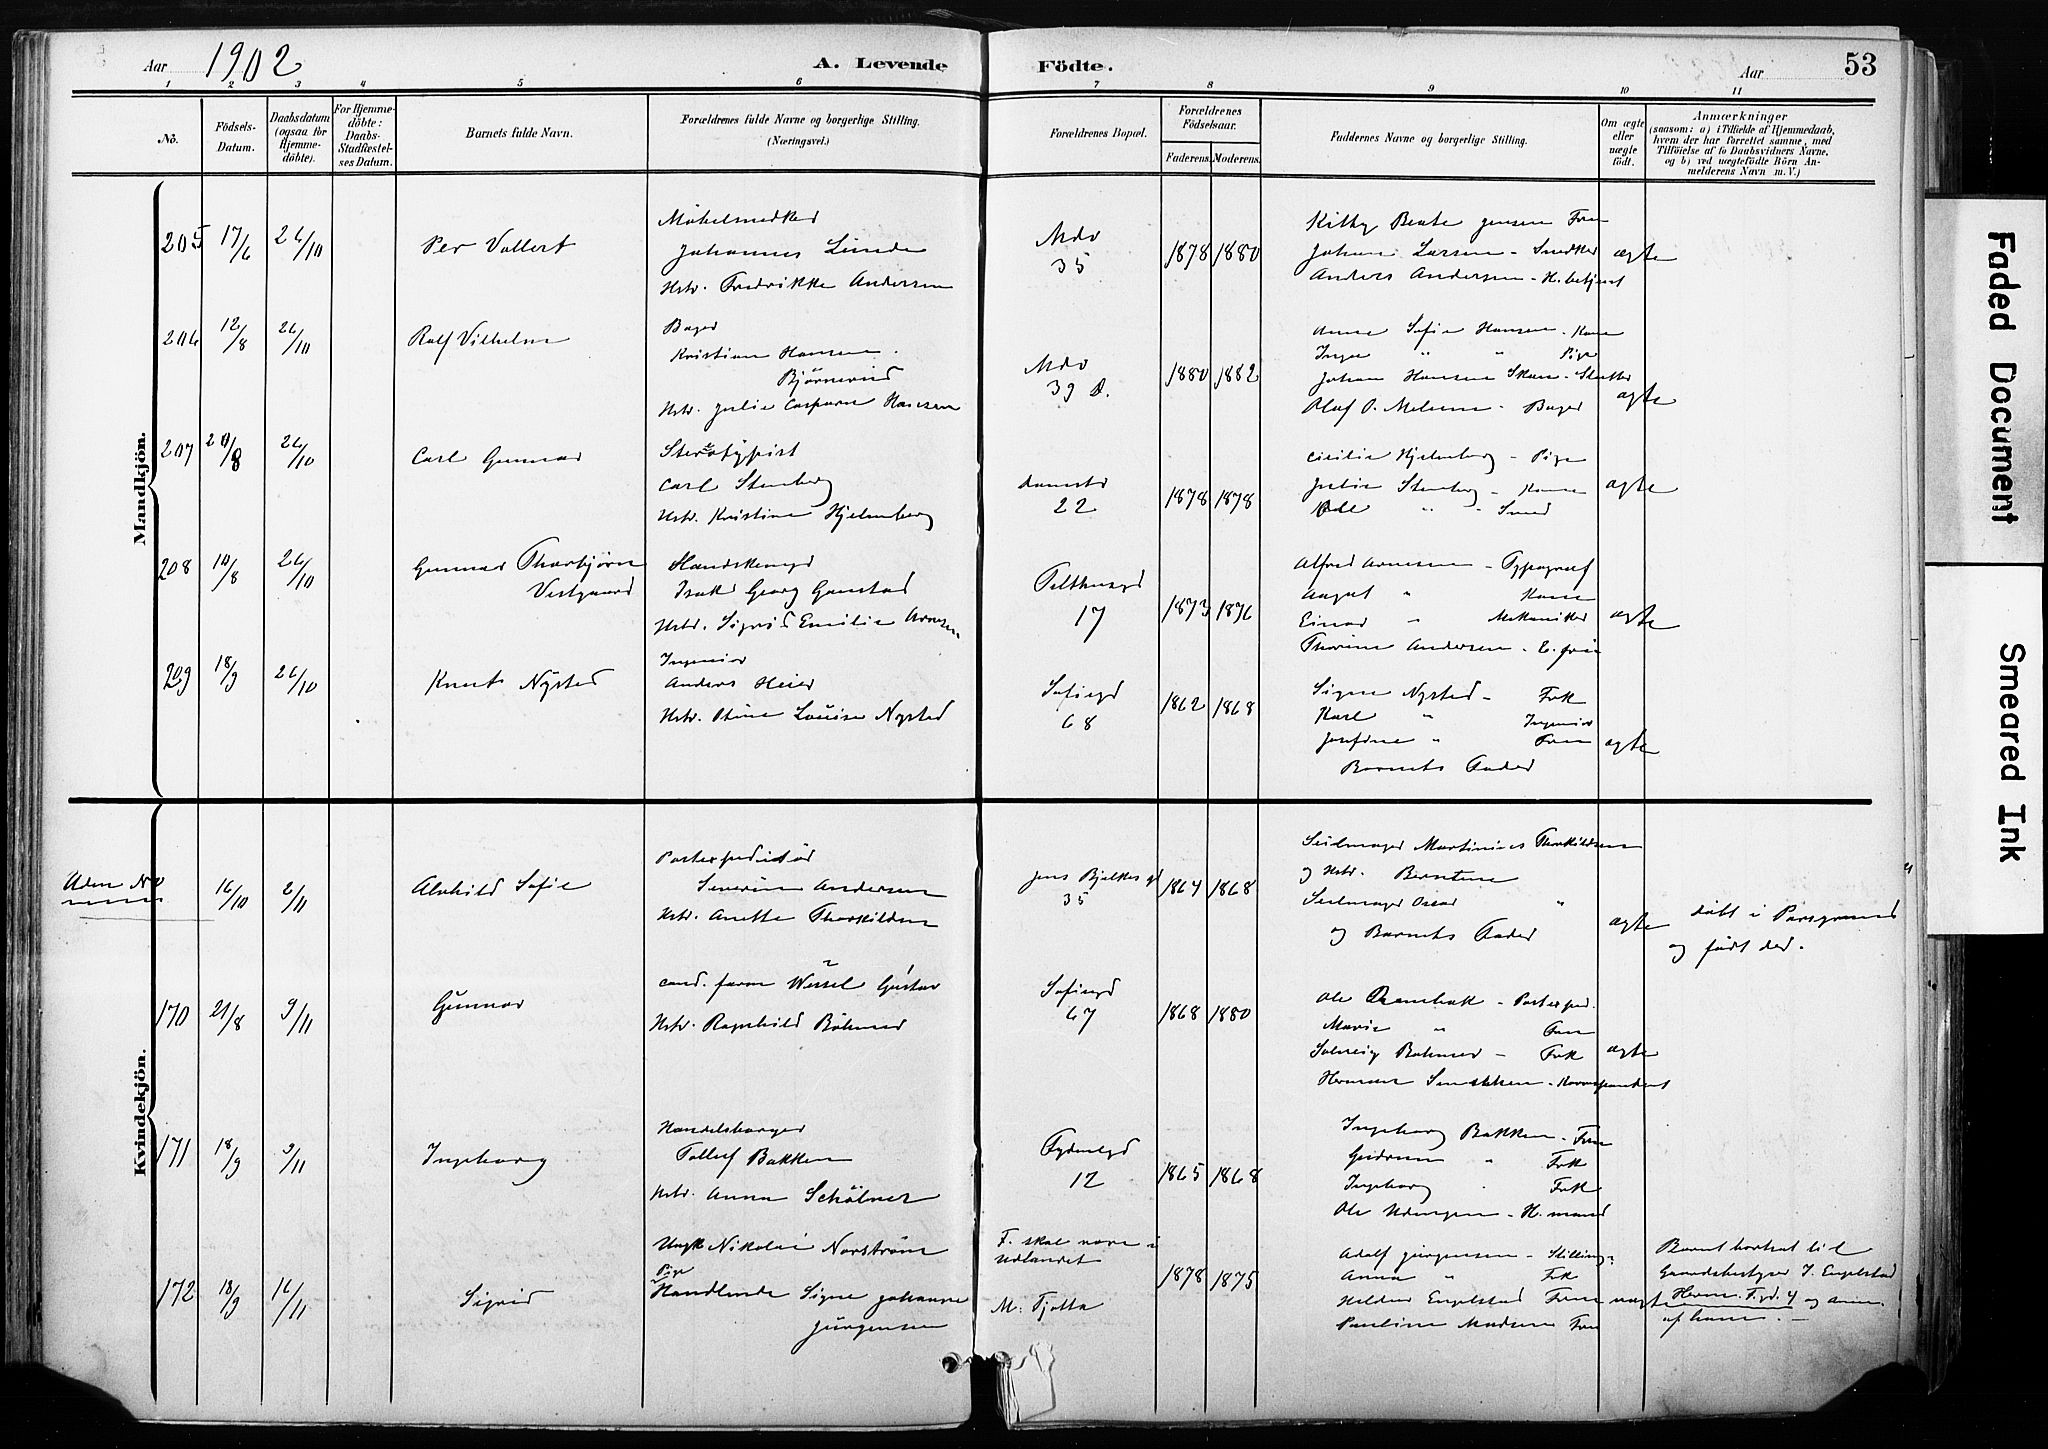 Aar 1902
A. Levende
Födte.
Aar
53
1 2 3 4 5 6 7 8 9 10 11
No.
Födsels-Datum.
Daabsdatum (ogsaa for Hjemmedöbte).
For Hjemmedöbte: Daabs-Stadfæstelses Datum.
Barnets fulde Navn.
Forældrenes fulde Navne og borgerlige Stilling.
(Næringsvei.)
Forældrenes Bopæl.
Forældrenes Födselsaar.
Faderens. Moderens.
Faddernes Navne og borgerlige Stilling.
Om ægte eller uægte födt.
Anmærkninger
(saasom: a) i Tilfælde af Hjemmedaab, hvem der har forrettet samme, med Tilföielse af to Daabsvidners Navne, og b) ved uægtefödte Börn Anmelderens Navn m. V.)
Mandkjön.
205 17/6 26/10 Per Vollert
Möbelsnedker
Johannes Lunde
Hstr. Fredrikke Andersen
Mdv
35
1878 1880
Kitty Beate Jensen Frue
Johan Larsen - Snedker
Anders Andersen - H. betjent
ægte
206 12/8 26/10 Rolf Vilhelm
Bager
Kristian Hansen
Björnerud
Hstr. Julie Caspara Hansen
Mdv
39 d.
1880 1882
Anne Sofie Hansen - Kone
Inga " " Pige
Johan Hansen
Olaf O. - Bager
ægte
207 20/8 26/10 Carl Gunnar
Stereotypist
Carl Stenberg
Hstr. Kristine Hjelmberg
22
1878 1878
Cicilie Hjelmberg - Pige
Julie Stenberg - Kone
" - Smed
ægte
208 10/8 26/10 Gunnar Thorbjörn
Vestgaard
Handskemgr
Isak Georg Gamstad
Hstr. Sigrid Emilie Arnesen
Telthusgd
17
1873 1876
Alfred Arnesen - Typograf
August " Kone
Einar " Mekaniker
Thorine Andersen - E. frue
ægte
209 18/9 26/10 Knut Nysted
Ingeniør
Anders Heier
Hstr. Stine Louise Nysted
Sofiegd
68
1862 1868
Signe Nysted - Frk
Karl " Ingeniör
Josefine " Frue
Barnets Fader
ægte
Kvindekjön.
Uden No
16/10 2/11 Alvhild Sofie
Postexpeditör
Severin Andersen
Hstr. Anette Thorkildsen
Jens Bjelkes gd
35
1867 1868
Seilmager Martinius Thorkildsen
og Hstr. Berntine
Seilmager Oscar "
og Barnets Fader
ægte
döbt i Porsgrund
og födt der.
170 21/8 9/11 Gunnar
cand. farm Wessel Gustav
Hstr. Ragnhild Böhmer
Sofiegd
67
1868 1880
Ole - Postexped.
Marie " Frue
Solveig Bohmer - Frk
Herman - Korrespondent
ægte
171 18/9 9/11 Ingeborg
Handelsborger
Tollef Bakken
Hstr. Anna Schölner
Fydenlgd
12
1865 1868
Ingeborg Bakken - Frue
Gudrun " Frk
Ingeborg " Frk
Ole - H. mand
172 18/9 16/11 Sigrid
Ungk Nikolai Norström
Pige
Handlende Signe Johanne
Jürgensen
F. skal være i
Udlandet
M: Tjotta
1878 1875
Adolf Jürgensen - Stilling
Anna " Frk
Engelstad Frue
Pauline Madsen Frue
uægte
Barnet bortsat til
Gaardsbestyrer J. Engelstad
Herm. Fgd. 4 og
af ham. -
Faded Document
Smeared Ink